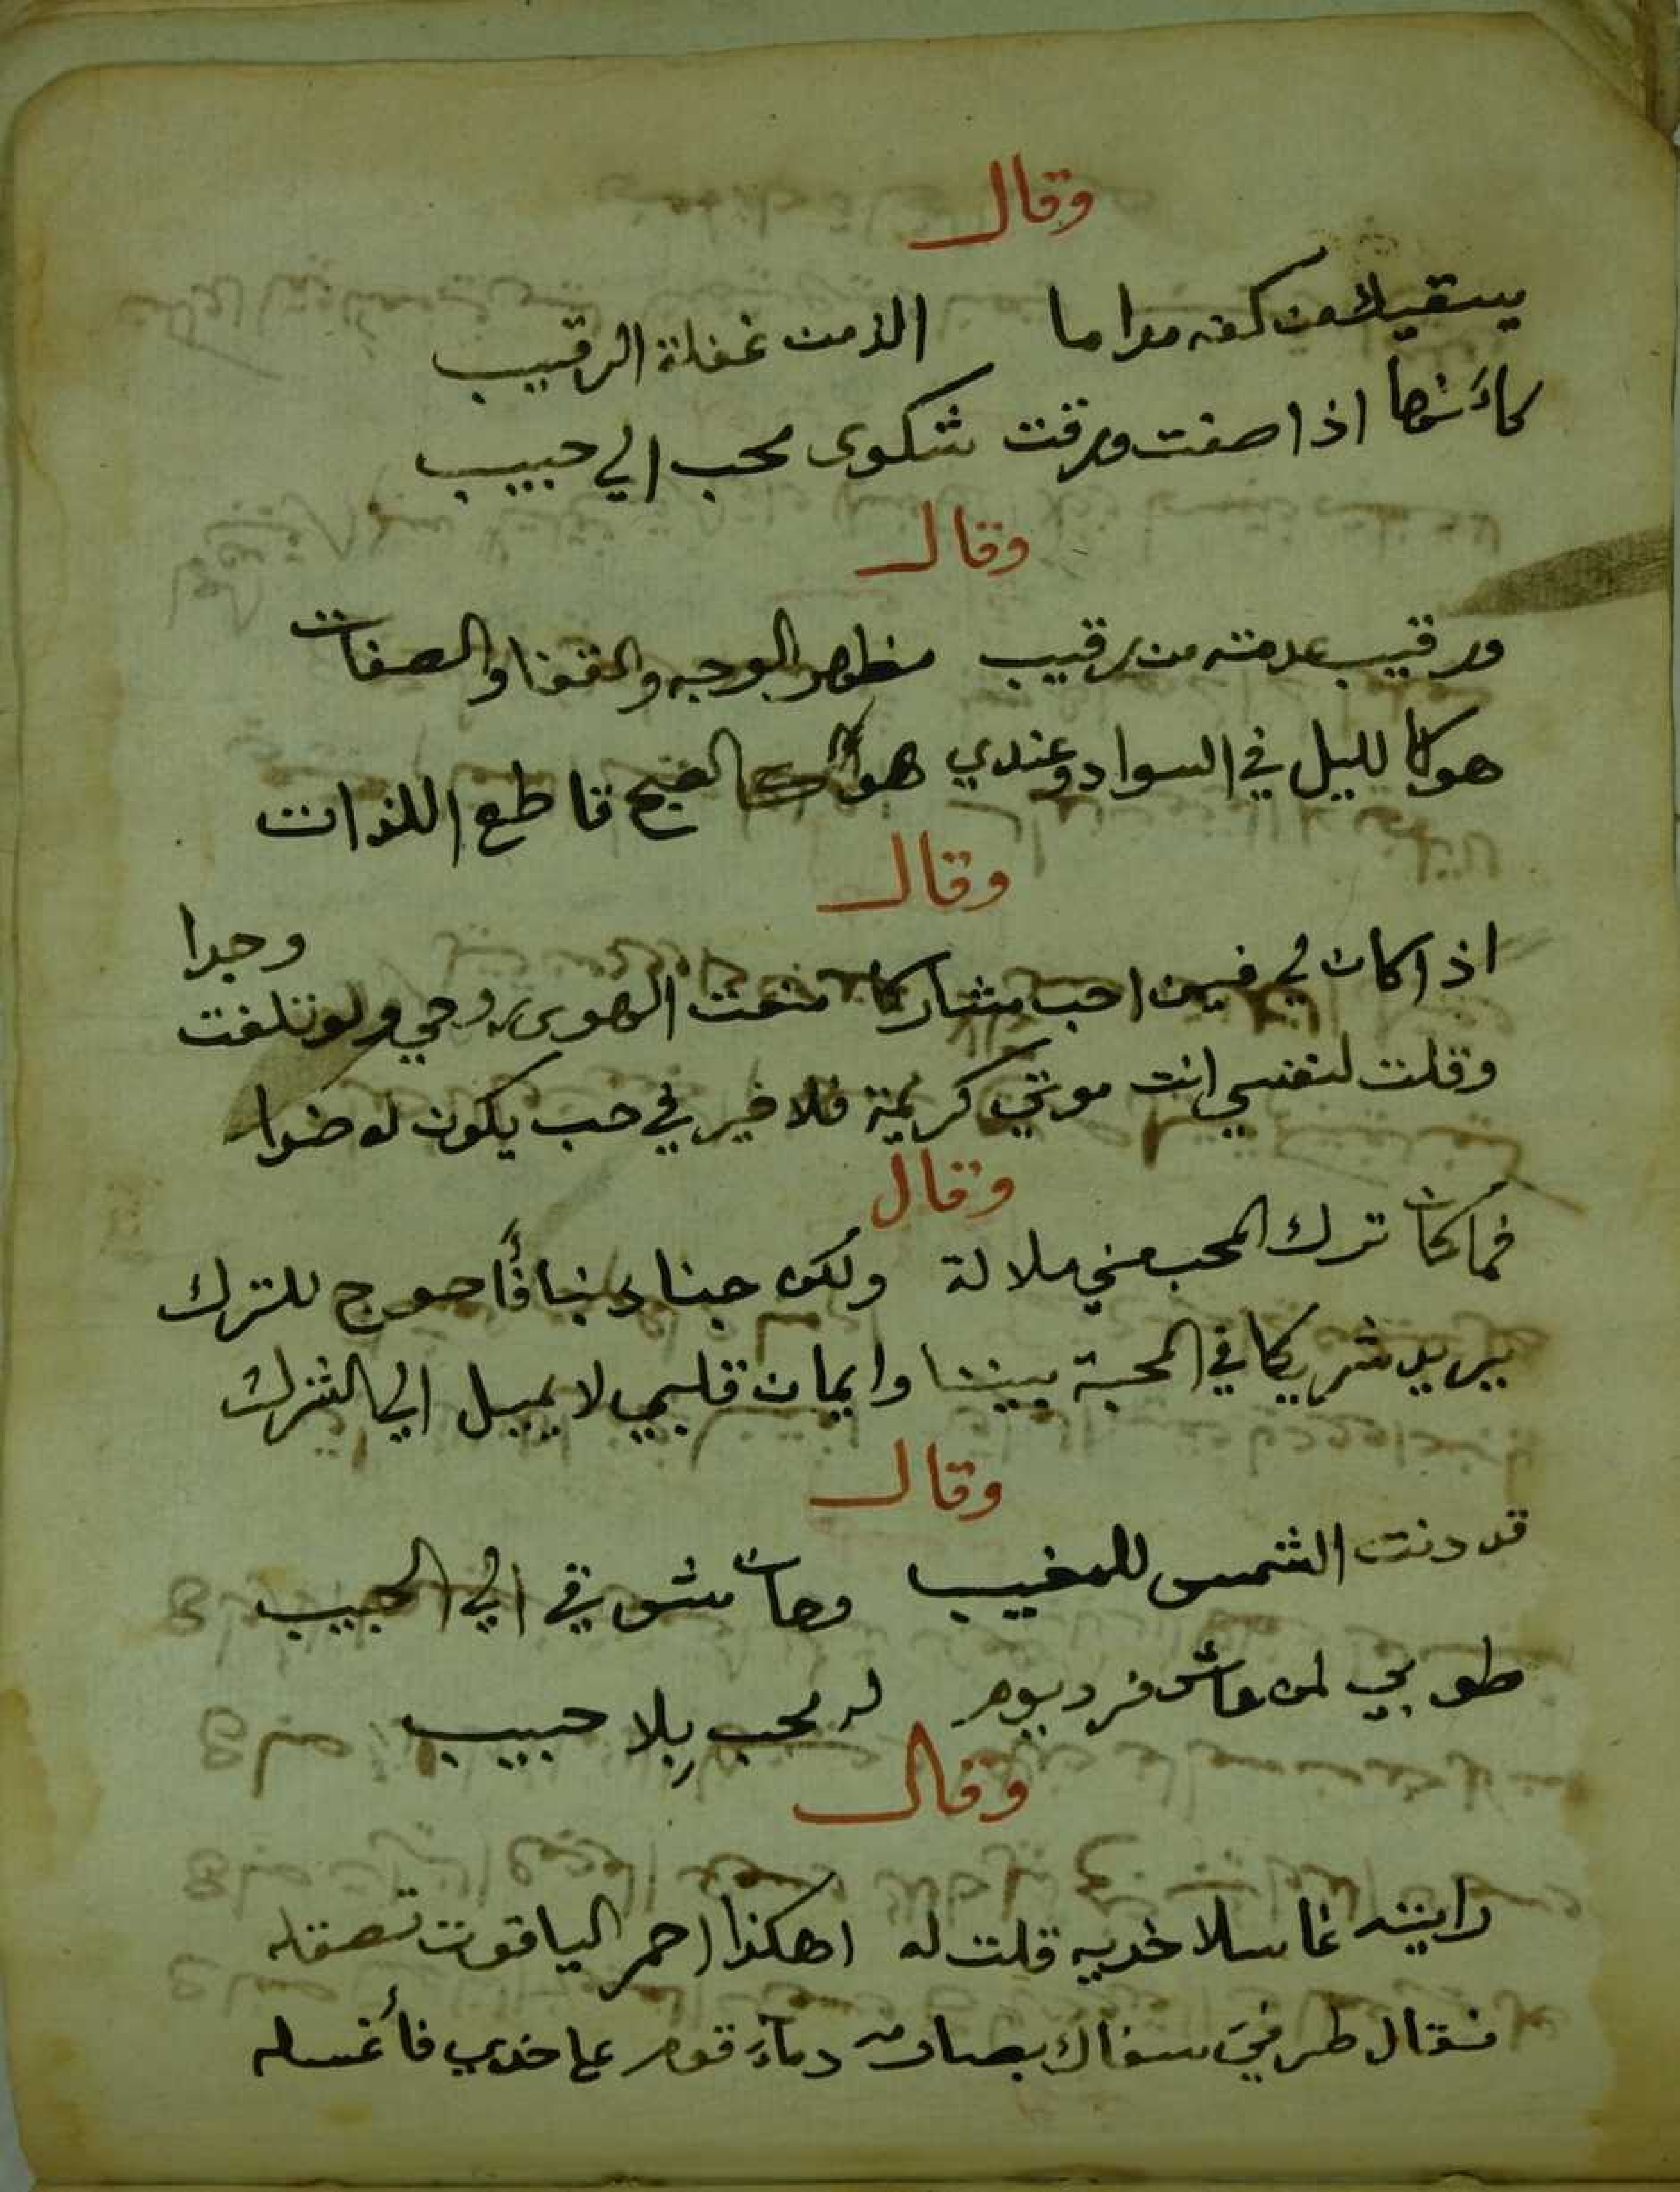 وقال
يسقيك من كفه مداما الذ من غفلة الرقيب
كأنها اذا صفت ورقت شكوى محب الي حبيب
وقال
ورقيب عدمته من رقيب مظهر الوجه والقفا والصفات
هو كالليل في السواد وعندي هو كالصبح قاطع اللذات
وقال
اذا كان لي فيمن احب مشاركا منعت الهوى روحي ولو تلفت وجدا
وقلت لنفسي انت موتي كريمة فلا خير في حب يكون له ضدا
وقال
فما كان ترك الحب مني ملالة ولكن جنا ذنبا فأحوج للترك
يريد شريكا في المحبة بيننا وايمان قلبي لا يميل الي الشرك
وقال
قد دنت الشمس للمغيب وحان شوقي الي الحبيب
طوبي لمن عاش فرد يوم له محب بلا حبيب
وقال
رايته غاسلا خديه قلت له اهكذا احمر الياقوت تصقله
فقال طرفي سفاك بصارمه دماء قوم على خدي فأغسله